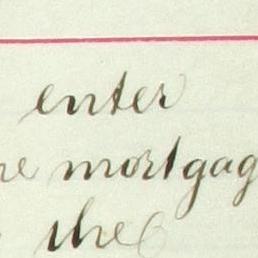 enter
he mortgag
the